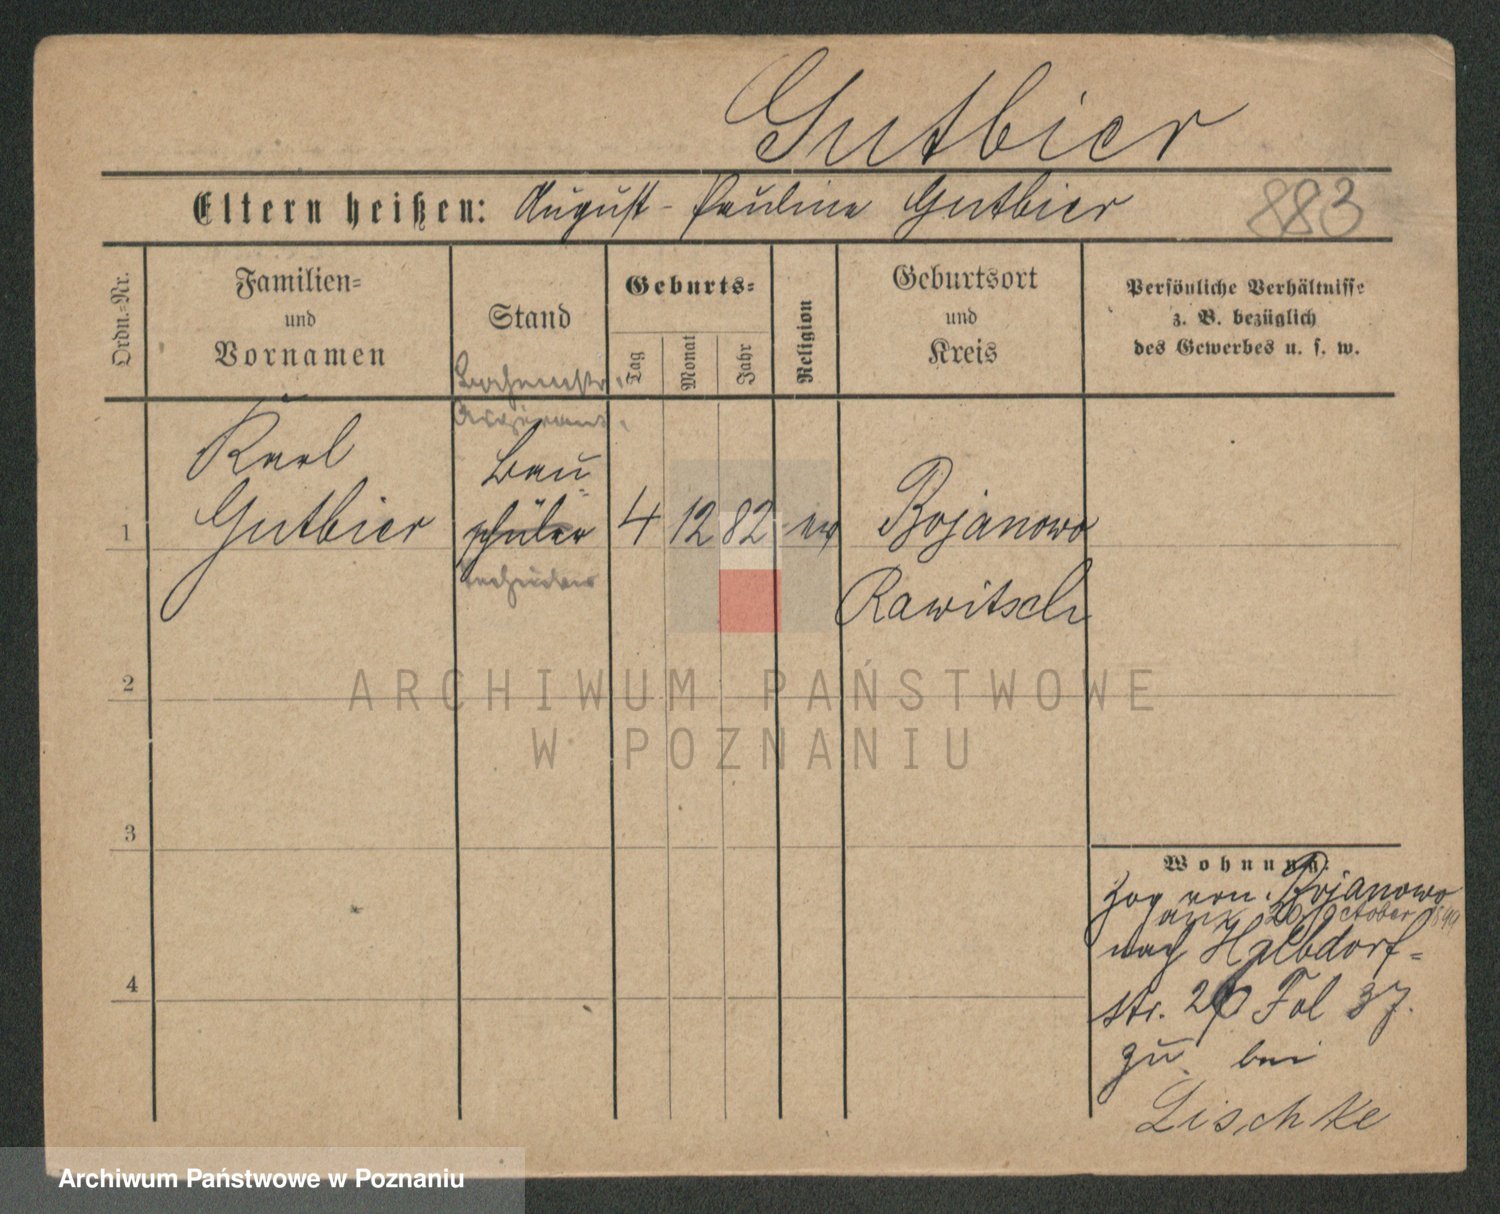 Gutbier
Eltern heißen: August - Pauline Gutbier
883
Ordn.-Nr.
Familien=
und
Vornamen
Stand
Geburts=
Tag
Monat
Jahr
Religion
Geburtsort
und
Kreis
Persönliche Verhältnisse
z. B. bezüglich
des Gewerbes u. s. w.
Karl
Bau
1 Gutbier schüler 4 12 82 ev Bojanowo
Techniker
Rawitsch
ARCHIWUM PAŃSTWOWE
W POZNANIU
2
3
4
Wohnung:
Zog von Bojanowo
am 20 October 1899
nach Halbdorf=
str. 26 Fol 37.
zu bei
Lischke
Archiwum Państwowe w Poznaniu